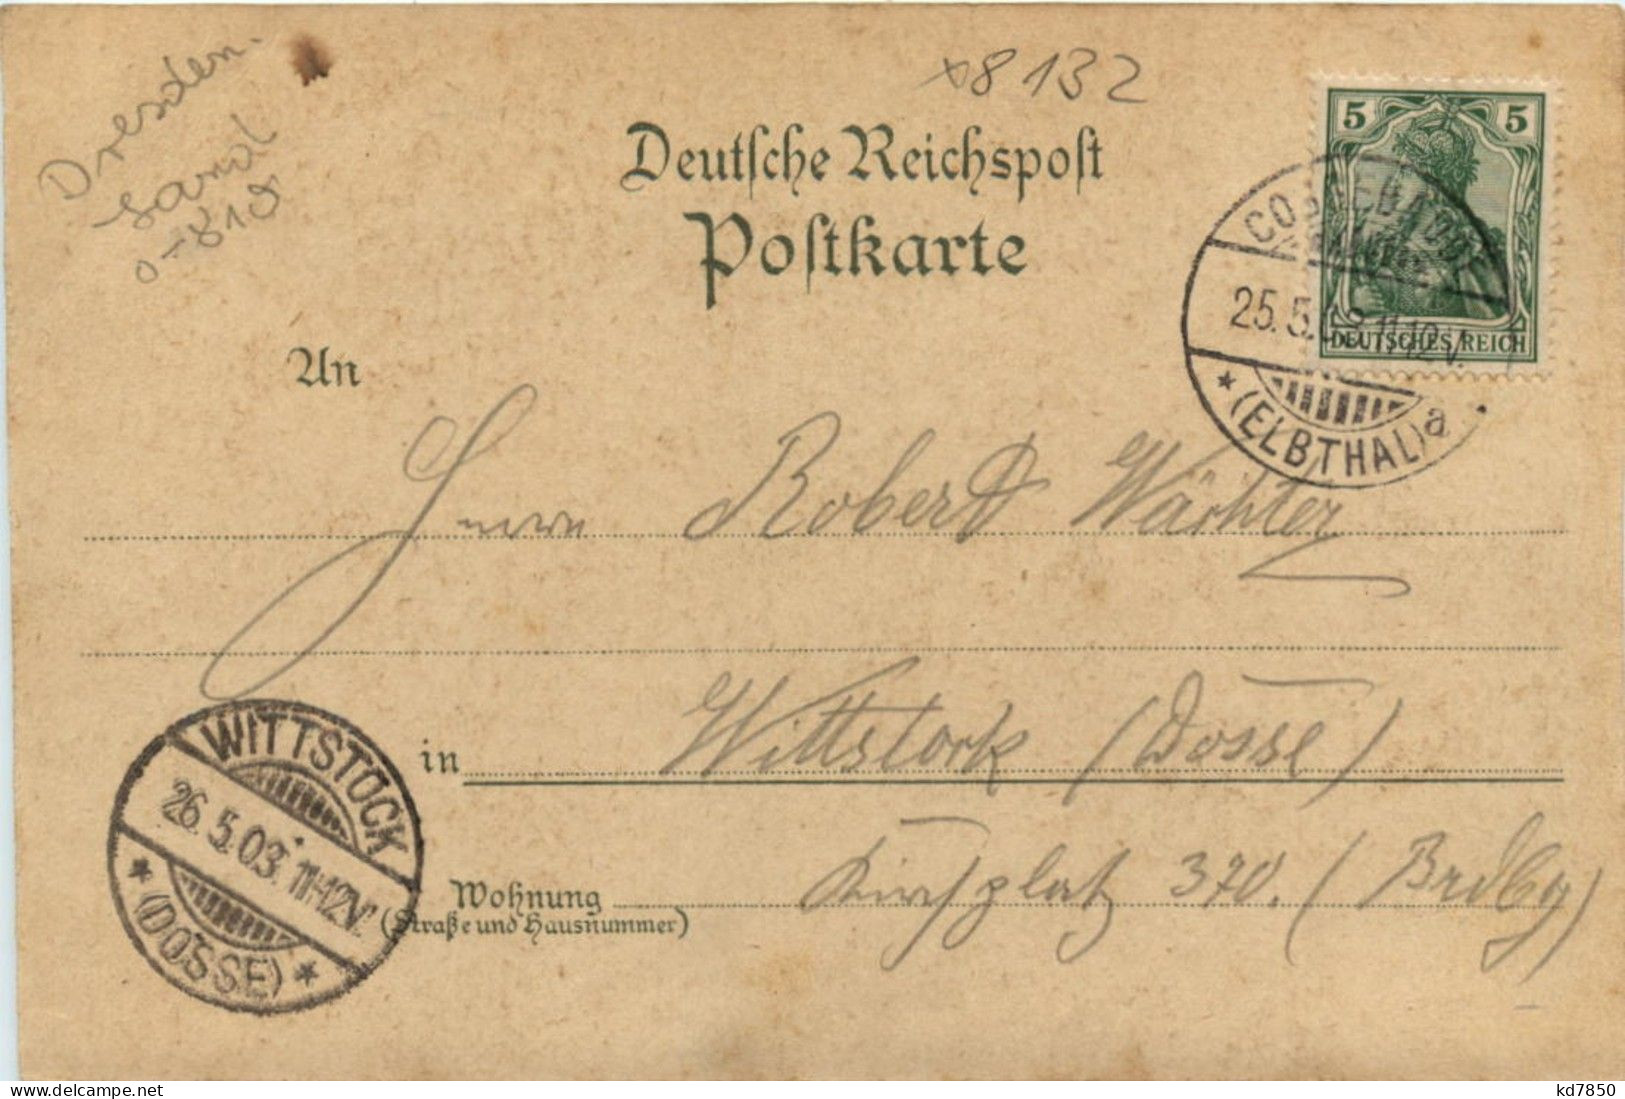 Dresden.
Land
0-819
8132
Deutsche Reichspost
Postkarte
5 5
DEUTSCHES REICH
COSSEBAUDE
25.5.03.11-12V.
* (ELBTHAL) a
An
Herrn Robert Wächter
in Wittstock (Dosse)
Wohnung Kirchplatz 370. (Brdbg)
(Straße und Hausnummer)
WITTSTOCK
26.5.03. 11-12V.
* (DOSSE) *
akpool.de
kd7850